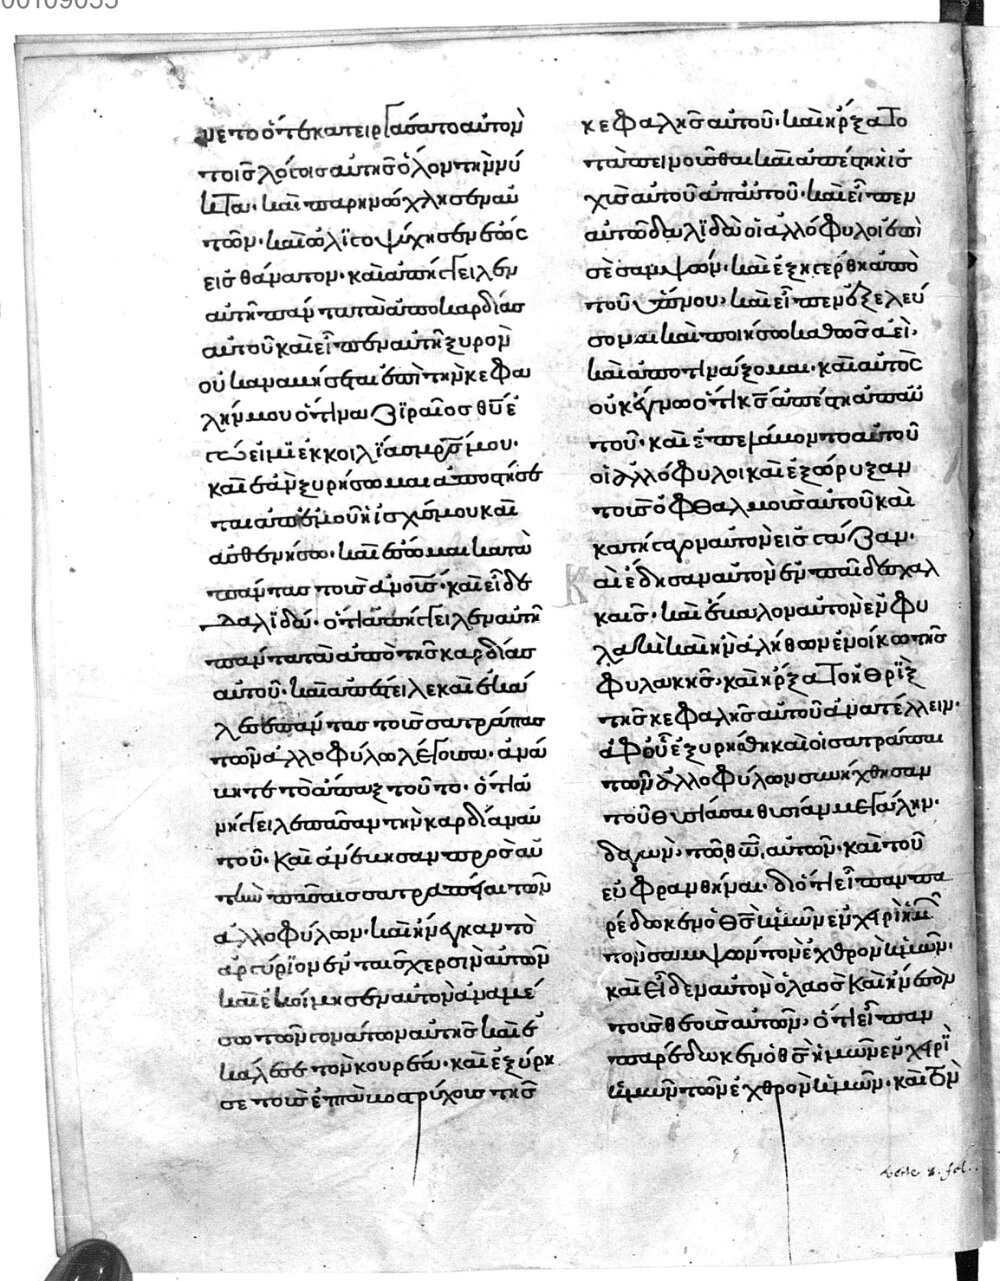 μετο ὅτε κατειργάσατο αὐτὸν
τοῖς λόγοις αὐτῆς ὅλην τὴν νύ
κτα· καὶ παρηνώχλησεν αὐ
τῶν· καὶ ὠλιγοψύχησεν ἕως
εἰς θάνατον· καὶ ἀπήγγειλεν
αὐτῆ πάντα τὰ ἀπὸ καρδίας
αὐτοῦ καὶ εἶπεν αὐτῆ ξυρὸν
οὐκ ἀναβήσεται ἐπὶ τὴν κεφα
λήν μου ὅτι ναζιραῖος θυ ἐ
γώ εἰμι ἐκ κοιλίας μρς μου·
καὶ ἐὰν ξυρήσωμαι ἀποστήσε
ται ἀπ' ἐμοῦ ἡ ἰσχύς μου καὶ
ἀσθενήσω· καὶ ἔσωμαι κατὰ
πάντας τοὺς ἀνούς· καὶ εἶδε
δαλιδά· ὅτι ἀπήγγειλεν αὐτῆ
πάντα τὰ ἀπὸ τῆς καρδίας
αὐτοῦ· καὶ ἀπέστειλε καὶ ἐκά
λεσε πάντας τοὺς σατράπας
τῶν ἀλλοφύλω λέγουσα· ἀνά
βητε τὸ ἅπαξ τοῦτο· ὅτι ἀ
νήγγειλε πᾶσαν τὴν καρδίαν αὐ
τοῦ· καὶ ἀνέβησαν πρὸς αὐ
τὴν πᾶσαι σατραπίαι τῶν
ἀλλοφύλων· καὶ ἤνεγκαν τὸ
ἀργύριον ἐν ταῖς χερσὶν αὐτῶν
καὶ ἐκοίμησεν αὐτὸν ἀναμέ
σω τῶν γονάτων αὐτῆς καὶ ἐ
κάλεσε τὸν κουρέα· καὶ ἐξύρη
σε τοὺς ἑπτὰ βοστρύχους τῆς
κεφαλῆς αὐτοῦ· καὶ ἤρξατο
ταπεινοῦσθαι καὶ ἀπέστη ἡ ἰσ
χὺς αὐτοῦ ἀπ' αὐτοῦ· καὶ εἶπεν
αὐτῶ δαλιδὰ οἱ ἀλλόφυλοι ἐπὶ
σὲ σαμψών· καὶ ἐξηγέρθη ἀπὸ
τοῦ ὕπνου· καὶ εἶπεν ἐξελεύ
σομαι καὶ ποιήσω καθὼς ἀεὶ·
καὶ ἀποτινάξομαι· καὶ αὐτὸς
οὐκ ἔγνω ὅτι κς ἀπέστη ἀπ' αὐ
τοῦ· καὶ ἐπελάβοντο αὐτοῦ
οἱ ἀλλόφυλοι καὶ ἐξώρυξαν
τοὺς ὀφθαλμοὺς αὐτοῦ καὶ
κατήγαγον αὐτὸν εἰς γάζαν·
καὶ ἔδησαν αὐτὸν ἐν πέδαις χαλ
καῖς· καὶ ἔβαλον αὐτὸν ἐν φυ
λακῆ καὶ ἦν ἀλήθων ἐν οἴκω τῆς
φυλακῆς· καὶ ἤρξατο ἡ θρὶξ
τῆς κεφαλῆς αὐτοῦ ἀνατέλλειν·
ἀφ' οὗ ἐξυρήθη καὶ οἱ σατράπαι
τῶν ἀλλοφύλων συνήχθησαν
τοῦ θυσιάσαι θυσίαν μεγάλην·
δαγών τῶ θω αὐτῶν· καὶ τοῦ
εὐφρανθῆναι· διότι εἶπαν πα
ρέδωκεν ὁ θς ἡμῶν ἐν χειρὶ ἡμῶν
τὸν σαμψών τὸν ἐχθρὸν ἡμῶν·
καὶ εἶδεν αὐτὸν ὁ λαὸς καὶ ἤνεσαν
τοὺς θεοὺς αὐτῶν· ὅτι εἶπαν
παρέδωκεν ὁ θς ἡμῶν ἐν χειρὶ
ἡμῶν τὸν ἐχθρὸν ἡμῶν· καὶ τὸν